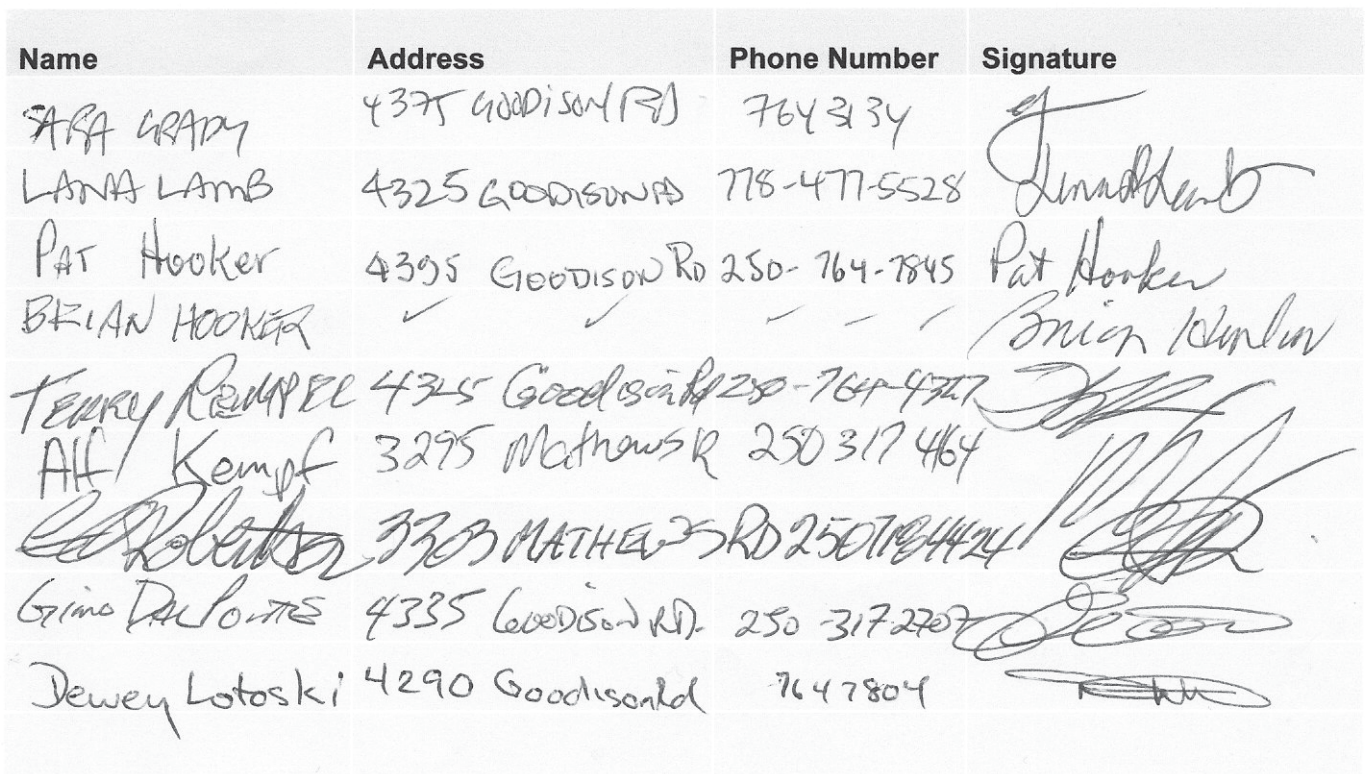 Name Address Phone Number Signature
SARA GRADY 4375 GOODISON RD 764 3134
LANA LAMB 4325 GOODISON RD 778-477-5528
PAT Hooker 4395 GOODISON RD 250-764-7845 Pat Hooker
BRIAN HOOKER ✓ ✓ - - - Brian Hooker
TERRY REMPEL 4325 Goodison Rd 250-764-4327
Alf Kempf 3295 Mathews R 250 317 4164
3303 MATHEWS RD
Gino DALPONTE 4335 GOODISON RD. 250-317-2707
Dewey Lotoski 4290 Goodison Rd 764 7804